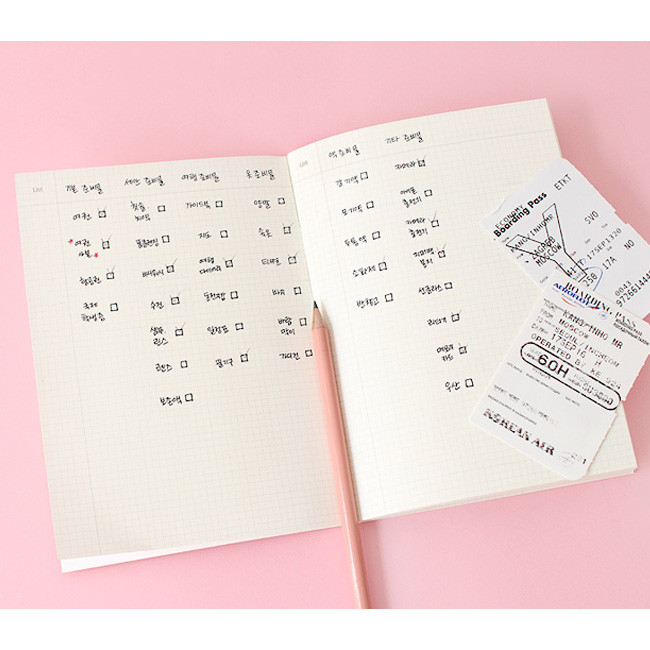 List
기본 준비물
여권
*여권
사본*
항공권
국제
학생증
세안 준비물
칫솔
치약
폼클렌징
바디워시
수건
샴푸
린스
렌즈
보존액
여행 준비물
가이드북
지도
여행
동전지갑
일정표
필기구
옷 준비물
양말
속옷
티셔츠
바지
바람
막이
가디건
List
약 준비물
감기약
모기약
두통약
소화제
반창고
기타 준비물
카메라
충전기
카메라
충전기
선글라스
우산
ETKT
ECONOMY
Boarding Pass
SVO
KANG/INHOME
MOSCOW
17SEP1320
17A NO
0041
BOARDING PASS
AEROFLOT
KANG/INHO MR
FROM MOSCOW
TO SEOUL/INCHEON
17SEP16 H
OPERATED BY KE 924
60H
KOREAN AIR